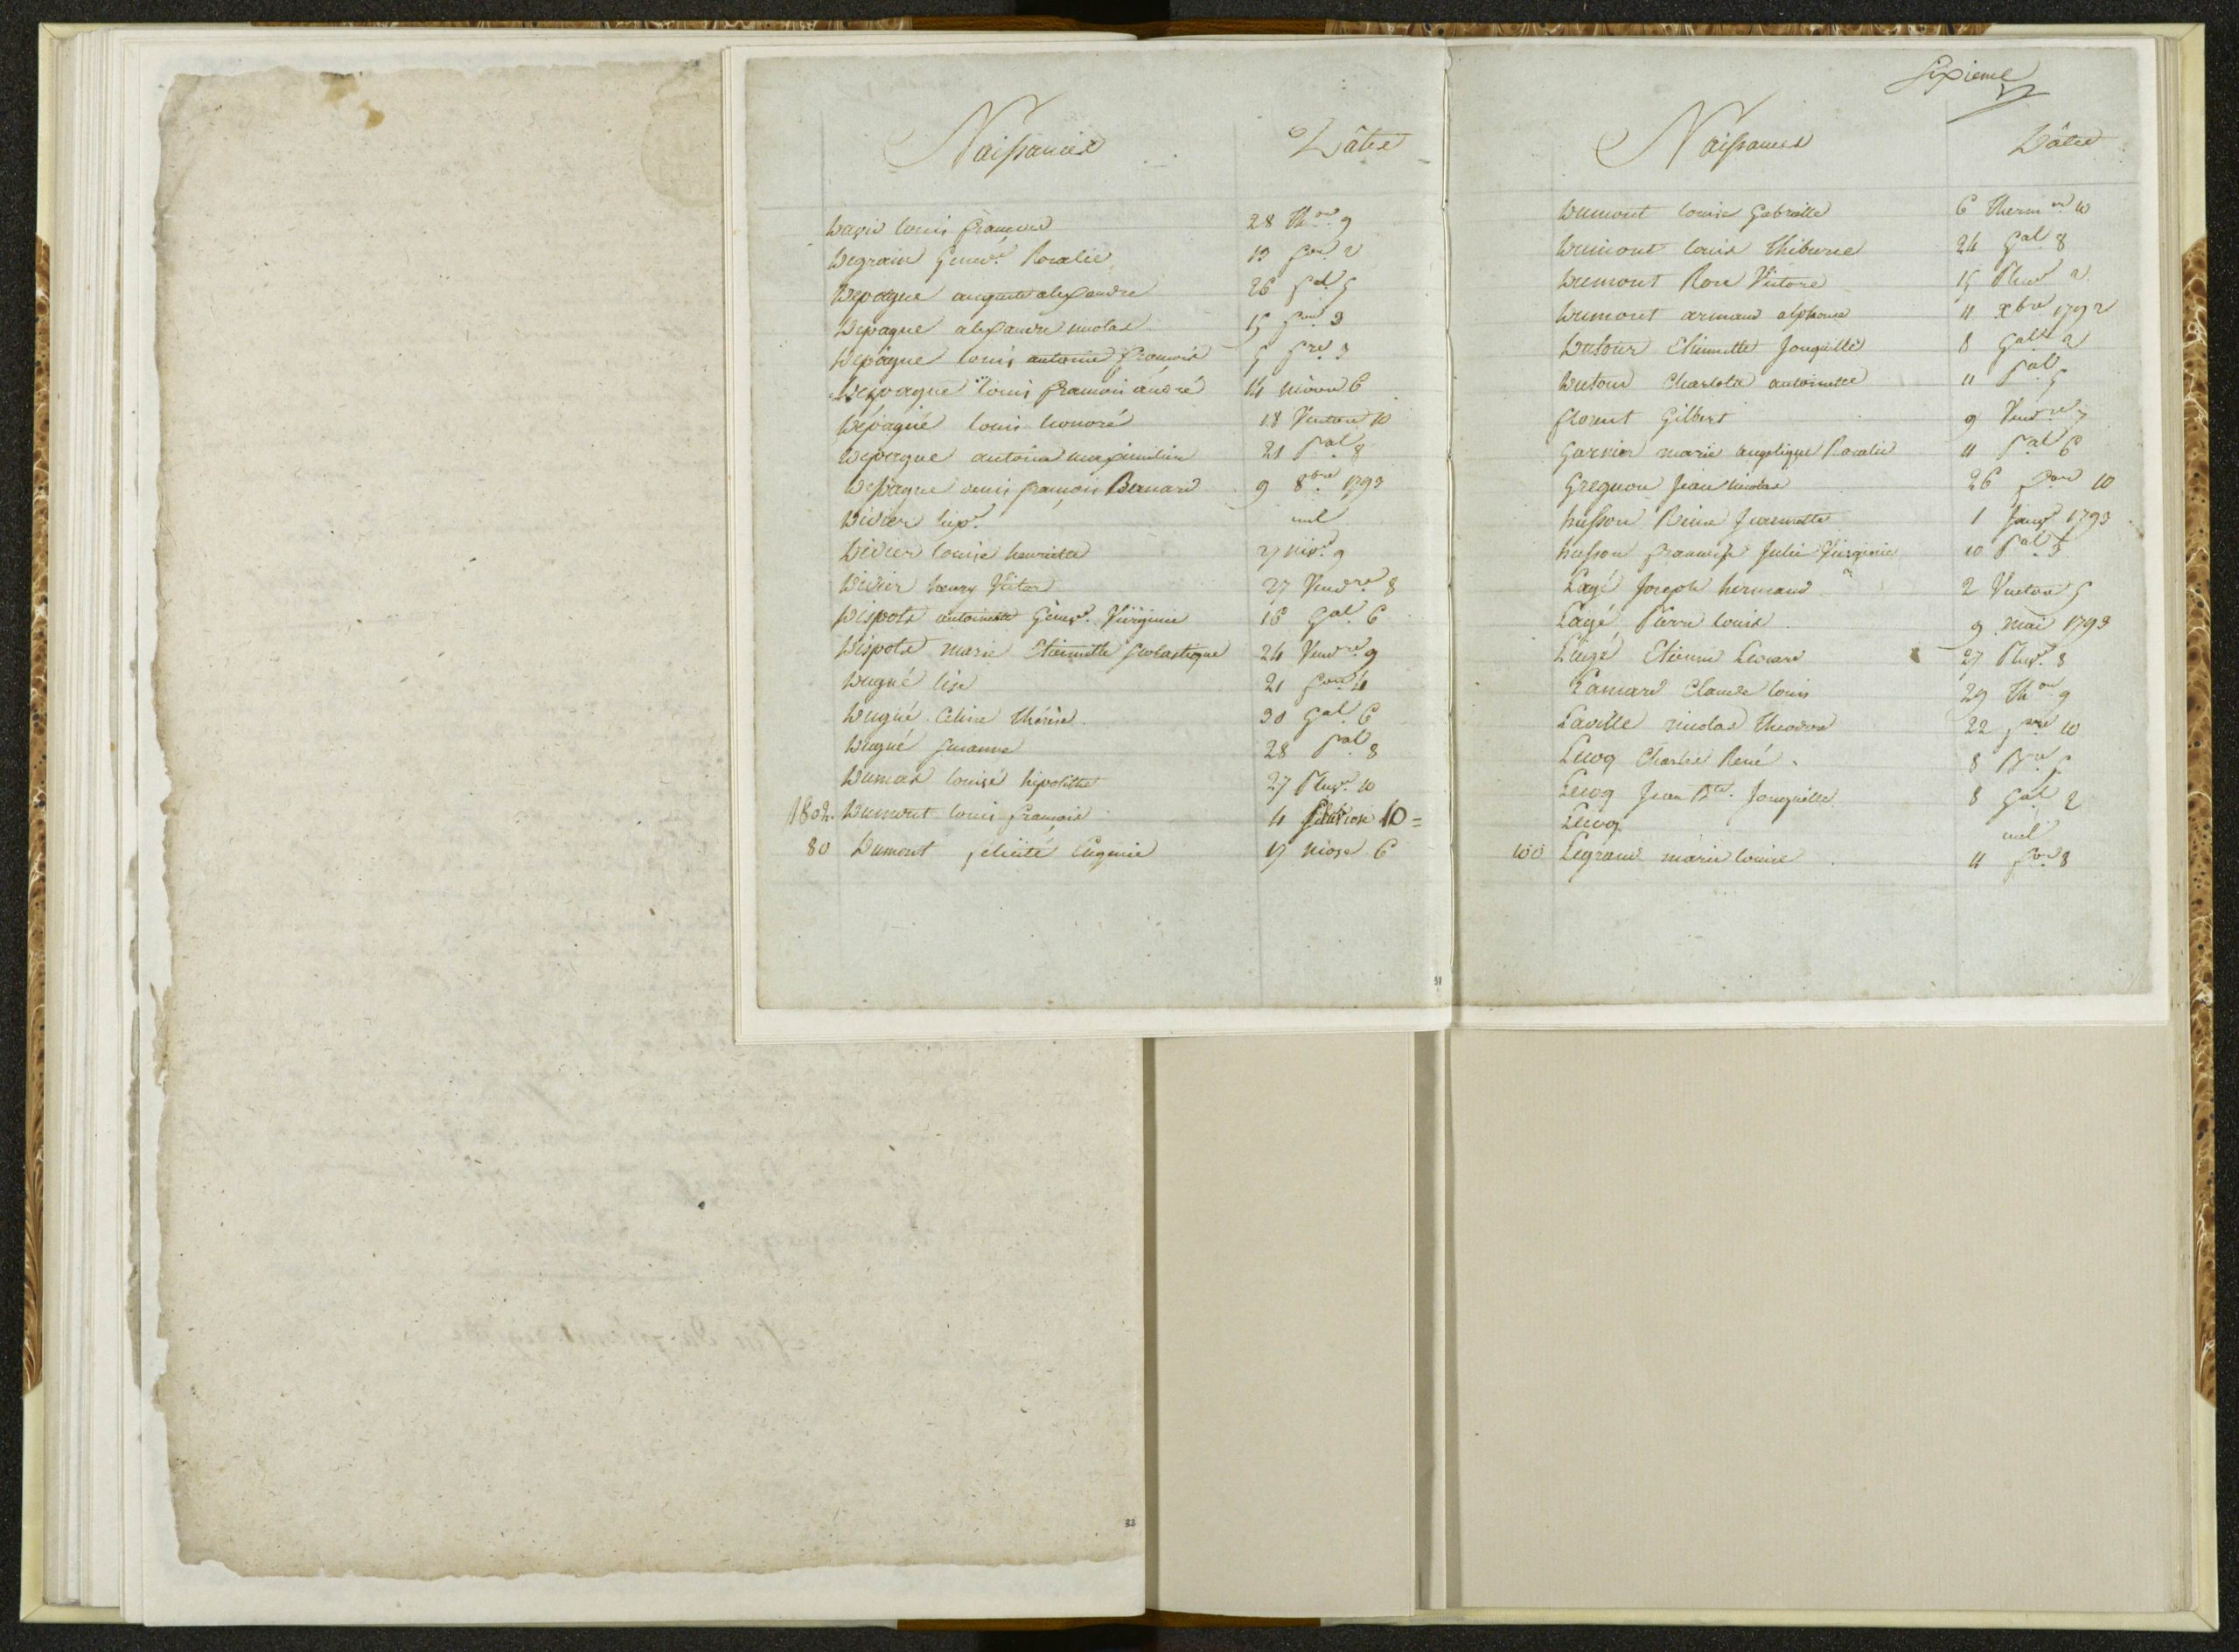 Naissances Dâtes
David louis francois 28 Th.or 9
Degrain Genev.e Rosalie
Depague auguste alexandre 26 g.al 5
Depague alexandre nicolas
Depague louis antoine francois
Depague louis francois andré 14 nivose 6
Depague louis honoré 18 Ventose 10
Depague antoine maximilien 21 P.al 8
Depague denis françois Bernard 9 8.bre 1793
Didier hip.te nul
Didier louise henriette 27 niv.e 9
Didier henry Victor 27 Vend.re 8
Dispots antoinette Genev.e Virginie 16 G.al 6
Dispots marie Etiennette Scolastique 24 Vend.re 9
Dugué lise
Dugué Celine Thérèse 30 G.al 6
Dugué Suzanne 28 P.al 8
Dumas louise hipolitte 27 Pluv.e 10
1802. Dumont louis françois 4 pluviose 10 =
80 Dumont félicité Eugenie 19 niose 6
31
Sixieme
Naissances Dâtes
Dumont louise Gabrielle 6 Therm.or 10
Dumont louis Thiburce 24 G.al 8
Dumont Rose Victoire 15 Pluv.e 2
Dumont armand alphonse 11 xbre 1792
Dutour Etiennette Jonquille 8 G.al 2
Dutour Charlotte antoinette 11 P.al 5
florent Gilbert 9 Vend.re 7
Garnier marie angelique Rosalie 11 P.al 6
Gregnon Jean nicolas 26 10
husson Reine Jeannette 1 Janv.r 1793
husson francoise Julie Virginie 10 P.al 3
Lagé Joseph hermand 2 Ventose 5
Lagé Pierre louis 9 mai 1793
Etienne Leonard 27 Pluv.e 8
Lamard Claude louis 29 Th.or 9
Laville nicolas Theodore 22 10
Lecoq Charles René
Lecoq Jean B.te Jonquille 8 G.al 2
Lecoq nul
100 Legrand marie louise 11 8
33